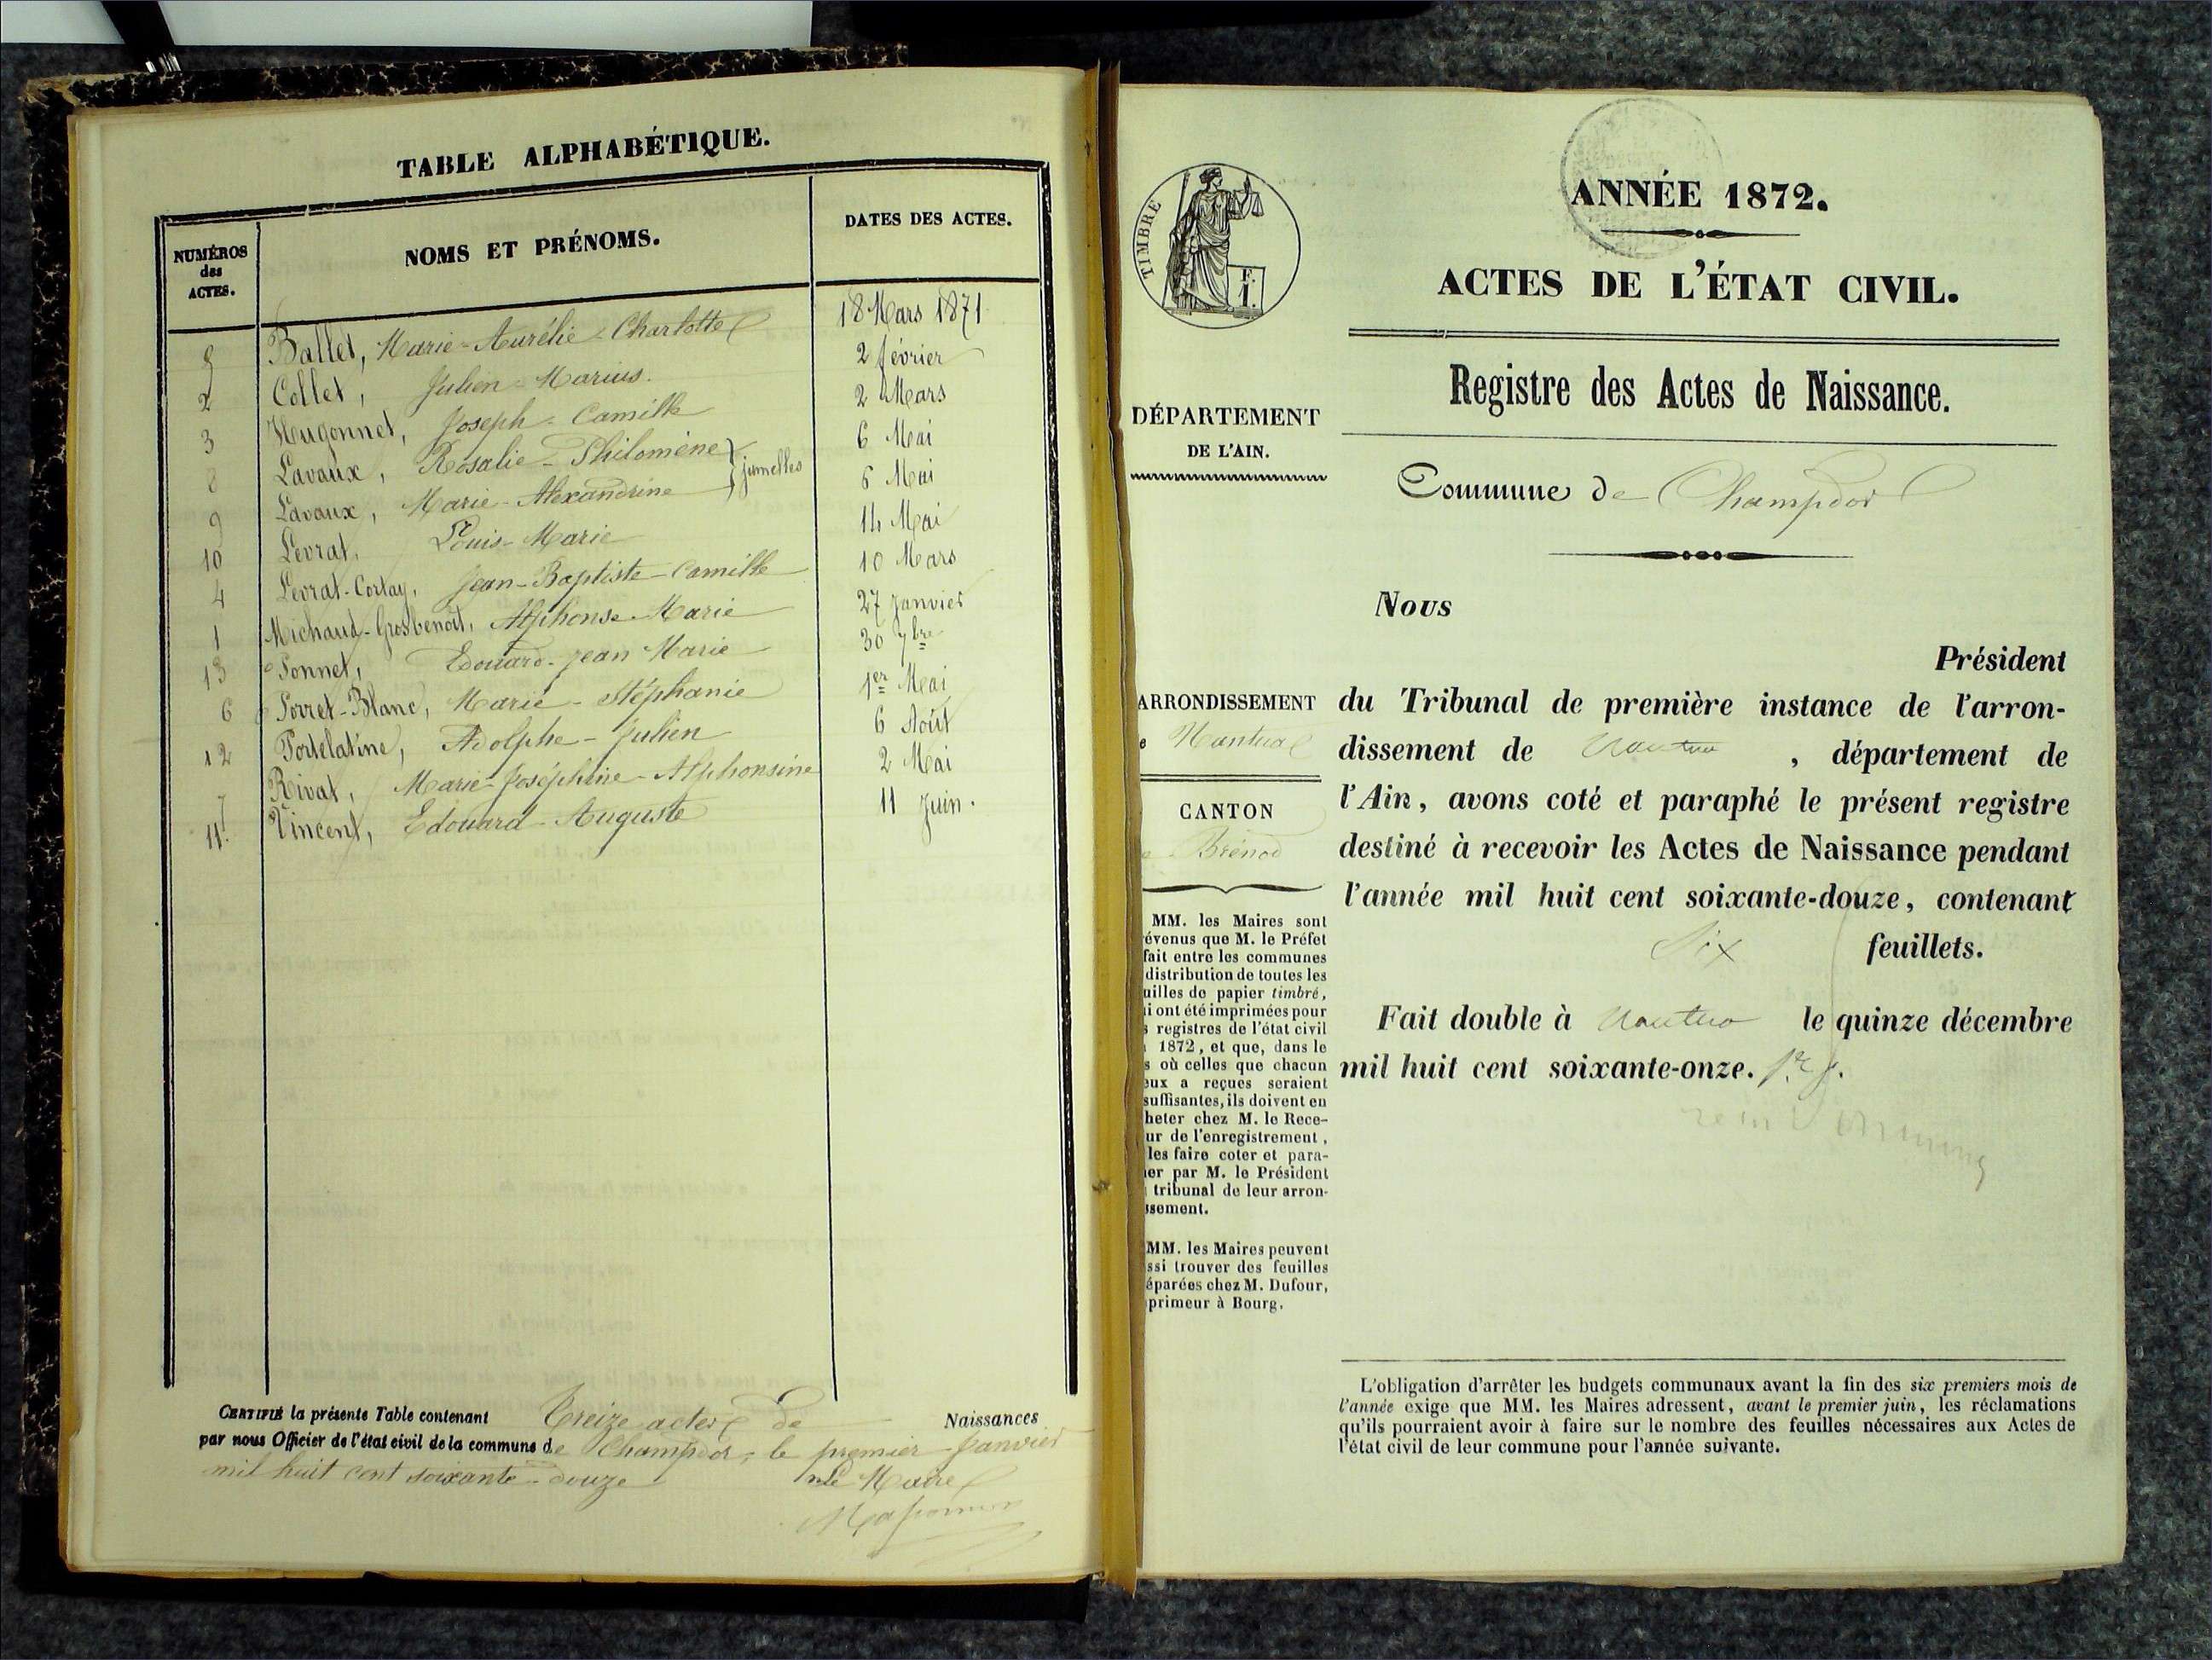 TABLE ALPHABÉTIQUE.
NUMÉROS des ACTES. NOMS ET PRÉNOMS. DATES DES ACTES.
5 Ballet, Marie-Aurélie-Charlotte 18 Mars 1871
2 Collet, Julien-Marius. 2 février
3 Hugonnet, Joseph-Camille 2 Mars
8 Lavaux, Rosalie-Philomène } jumelles 6 Mai
9 Lavaux, Marie-Alexandrine 6 Mai
10 Levrat, Louis-Marie 14 Mai
4 Levrat-Cortay, Jean-Baptiste-Camille 10 Mars
1 Michaud-Grosbenoit, Alphonse-Marie 27 Janvier
13 Ponnet, Edouard-Jean Marie 30 7bre
6 Porret-Blanc, Marie-Stéphanie 1er Mai
12 Portelatine, Adolphe-Julien 6 Août
7 Rivat, Marie-Joséphine-Alphonsine 2 Mai
11. Vincent, Edouard-Auguste 11 Juin.
CERTIFIÉ la présente Table contenant Treize actes de Naissances
par nous Officier de l'état civil de la commune de Champdor, le premier Janvier
mil huit cent soixante-douze
Le Maire
TIMBRE
F.
I.
DÉPARTEMENT
DE L'AIN.
ARRONDISSEMENT
e Nantua
CANTON
e Brénod
MM. les Maires sont
évenus que M. le Préfet
fait entre les communes
distribution de toutes les
uilles de papier timbré,
i ont été imprimées pour
s registres de l'état civil
1872, et que, dans le
s où celles que chacun
eux a reçues seraient
suffisantes, ils doivent en
heter chez M. le Rece-
ur de l'enregistrement,
les faire coter et para-
er par M. le Président
tribunal de leur arron-
ssement.
MM. les Maires peuvent
ssi trouver des feuilles
éparées chez M. Dufour,
primeur à Bourg.
ANNÉE 1872.
ACTES DE L'ÉTAT CIVIL.
Registre des Actes de Naissance.
Commune de Champdor
Nous
Président
du Tribunal de première instance de l'arron-
dissement de Nantua, département de
l'Ain, avons coté et paraphé le présent registre
destiné à recevoir les Actes de Naissance pendant
l'année mil huit cent soixante-douze, contenant
Six feuillets.
Fait double à Nantua le quinze décembre
mil huit cent soixante-onze.
L'obligation d'arrêter les budgets communaux avant la fin des six premiers mois de
l'année exige que MM. les Maires adressent, avant le premier juin, les réclamations
qu'ils pourraient avoir à faire sur le nombre des feuilles nécessaires aux Actes de
l'état civil de leur commune pour l'année suivante.